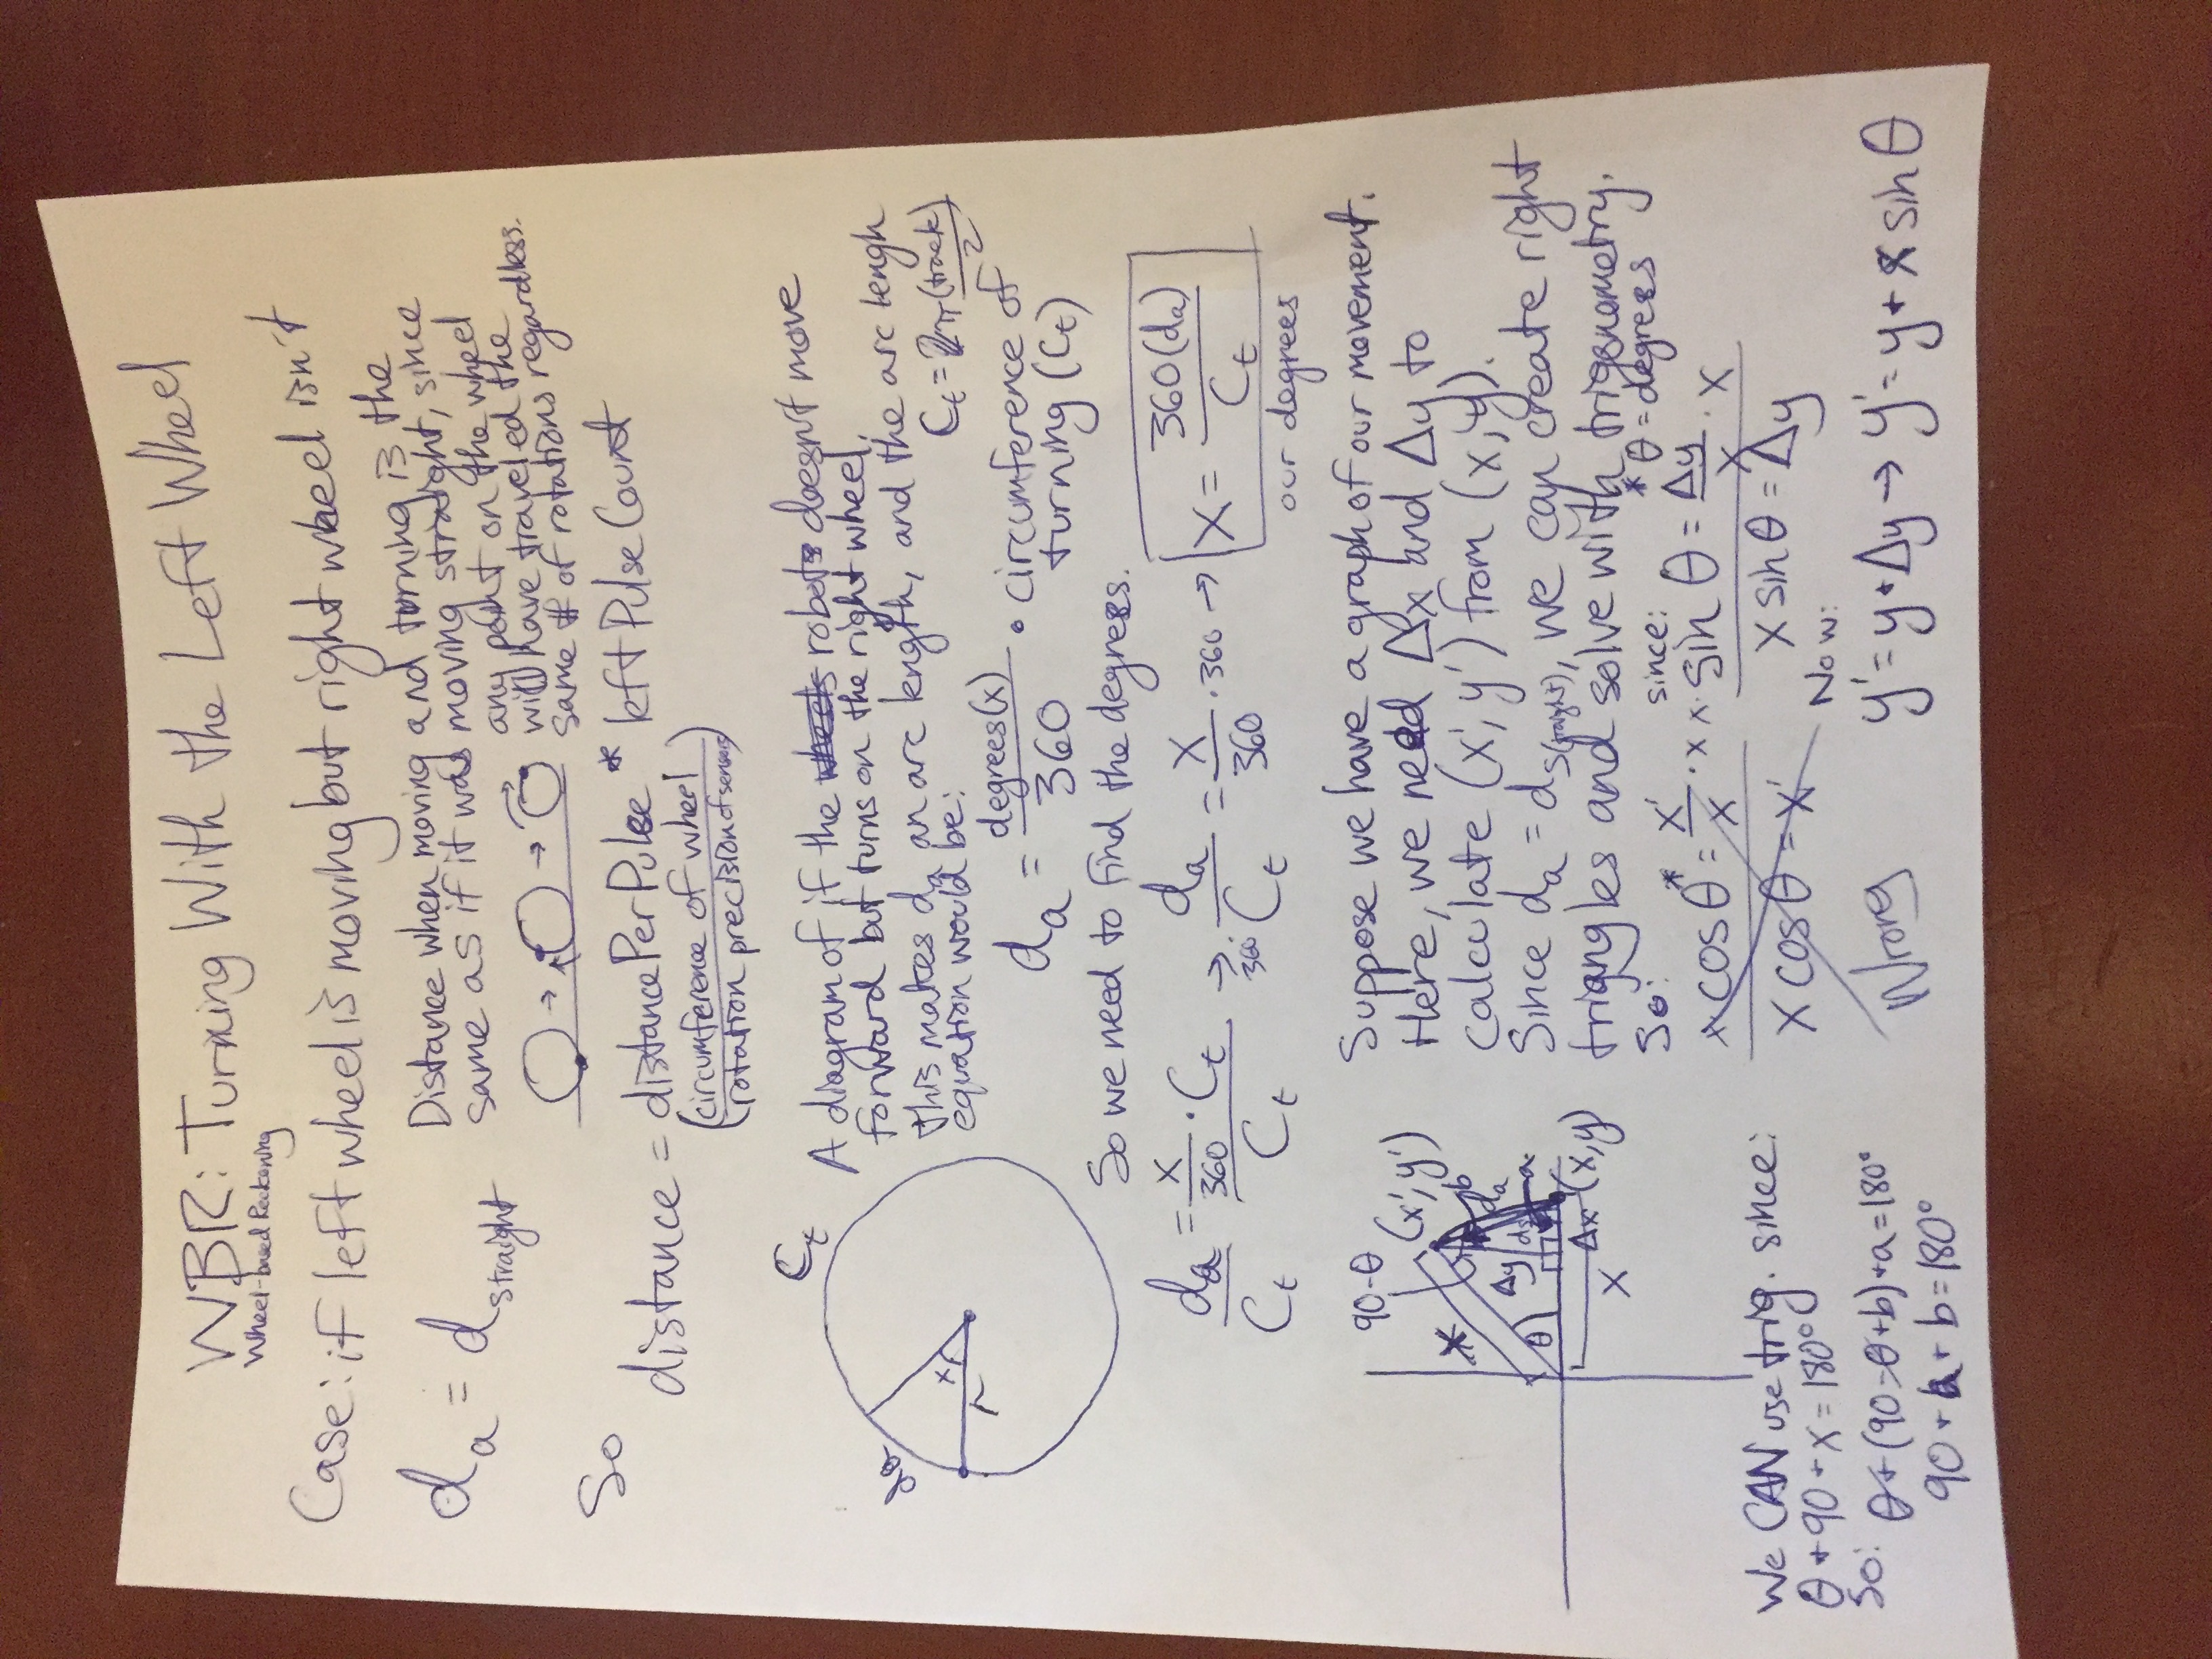 WBR: Turning With the Left Wheel
Wheel-based Reckoning
Case: if left wheel is moving but right wheel isn't
da = dstraight
Distance when moving and turning is the
same as if it was moving straight, since
any point on the wheel
will have traveled the
same # of rotations regardless.
So
distance = distancePerPulse * leftPulseCount
(circumference of wheel / rotation precision of sensors)
Ct
da
x
r
A diagram of if the wheels robot doesn't move
forward but turns on the right wheel.
this makes da an arc length, and the arc lengh
equation would be:
Ct = 2π(track)/2
da = degrees(x)/360 · circumference of
turning (Ct)
So we need to find the degrees.
da/Ct = x/360 · Ct/Ct → 360 · da/Ct = x/360 · 360 → x = 360(da)/Ct
our degrees
90-θ
(x', y')
*
b
da
Δy
ds
a
θ
Δx
(x,y)
x
Suppose we have a graph of our movement.
Here, we need Δx and Δy to
calculate (x', y') from (x, y).
Since da = ds(traight), we can create right
triangles and solve with trigonometry.
* θ = degrees
So:
x cos θ* = x'/x · x
x cos θ = x'
Wrong
since:
x · sin θ = Δy/x · x
x sin θ = Δy
Now:
y' = y + Δy → y' = y + x sin θ
We CAN use trig. since:
θ + 90 + x = 180°
So: θ + (90 - θ + b) + a = 180°
90 + a + b = 180°